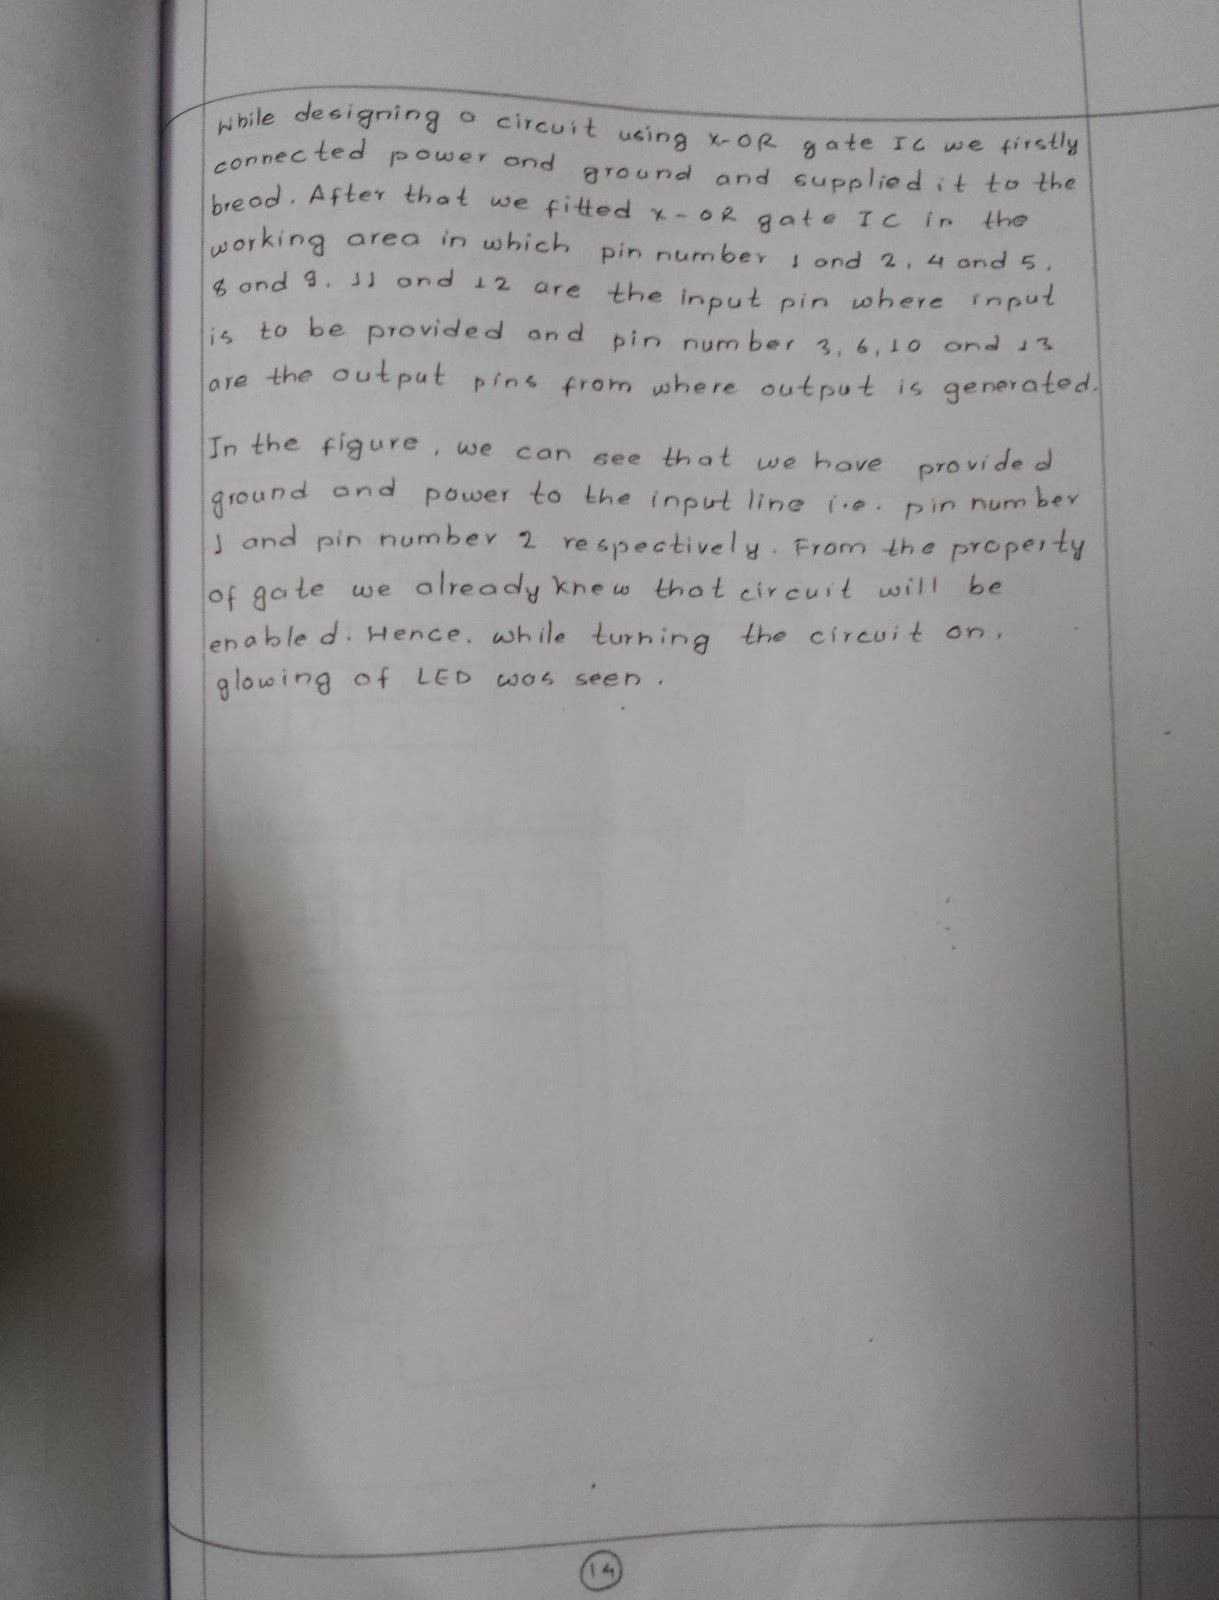 While designing a circuit using X-OR gate IC we firstly
connected power and ground and supplied it to the
bread. After that we fitted X-OR gate IC in the
working area in which pin number 1 and 2, 4 and 5,
8 and 9, 11 and 12 are the input pin where input
is to be provided and pin number 3, 6, 10 and 13
are the output pins from where output is generated.
In the figure, we can see that we have provided
ground and power to the input line i.e. pin number
1 and pin number 2 respectively. From the property
of gate we already knew that circuit will be
enabled. Hence, while turning the circuit on,
glowing of LED was seen.
14